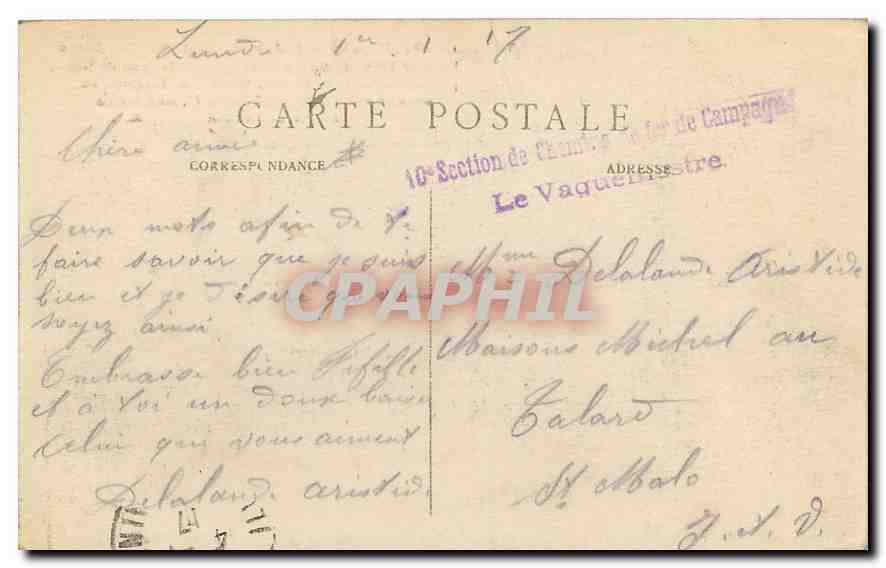 Lundi 1er. 1. 17
CARTE POSTALE
CORRESPONDANCE
ADRESSE
10e Section de Chemins de fer de Campagne
Le Vaguemestre
Chère aimé
Deux mots afin de te
faire savoir que je suis
bien et je désire que
soyez ainsi
Embrasse bien Fifille
et à toi un doux baiser
Celui qui vous aiment
Delalande Aristide
Mme Delalande Aristide
Maisons Michel au
Talard
St Malo
I. et V.
CPAPHIL